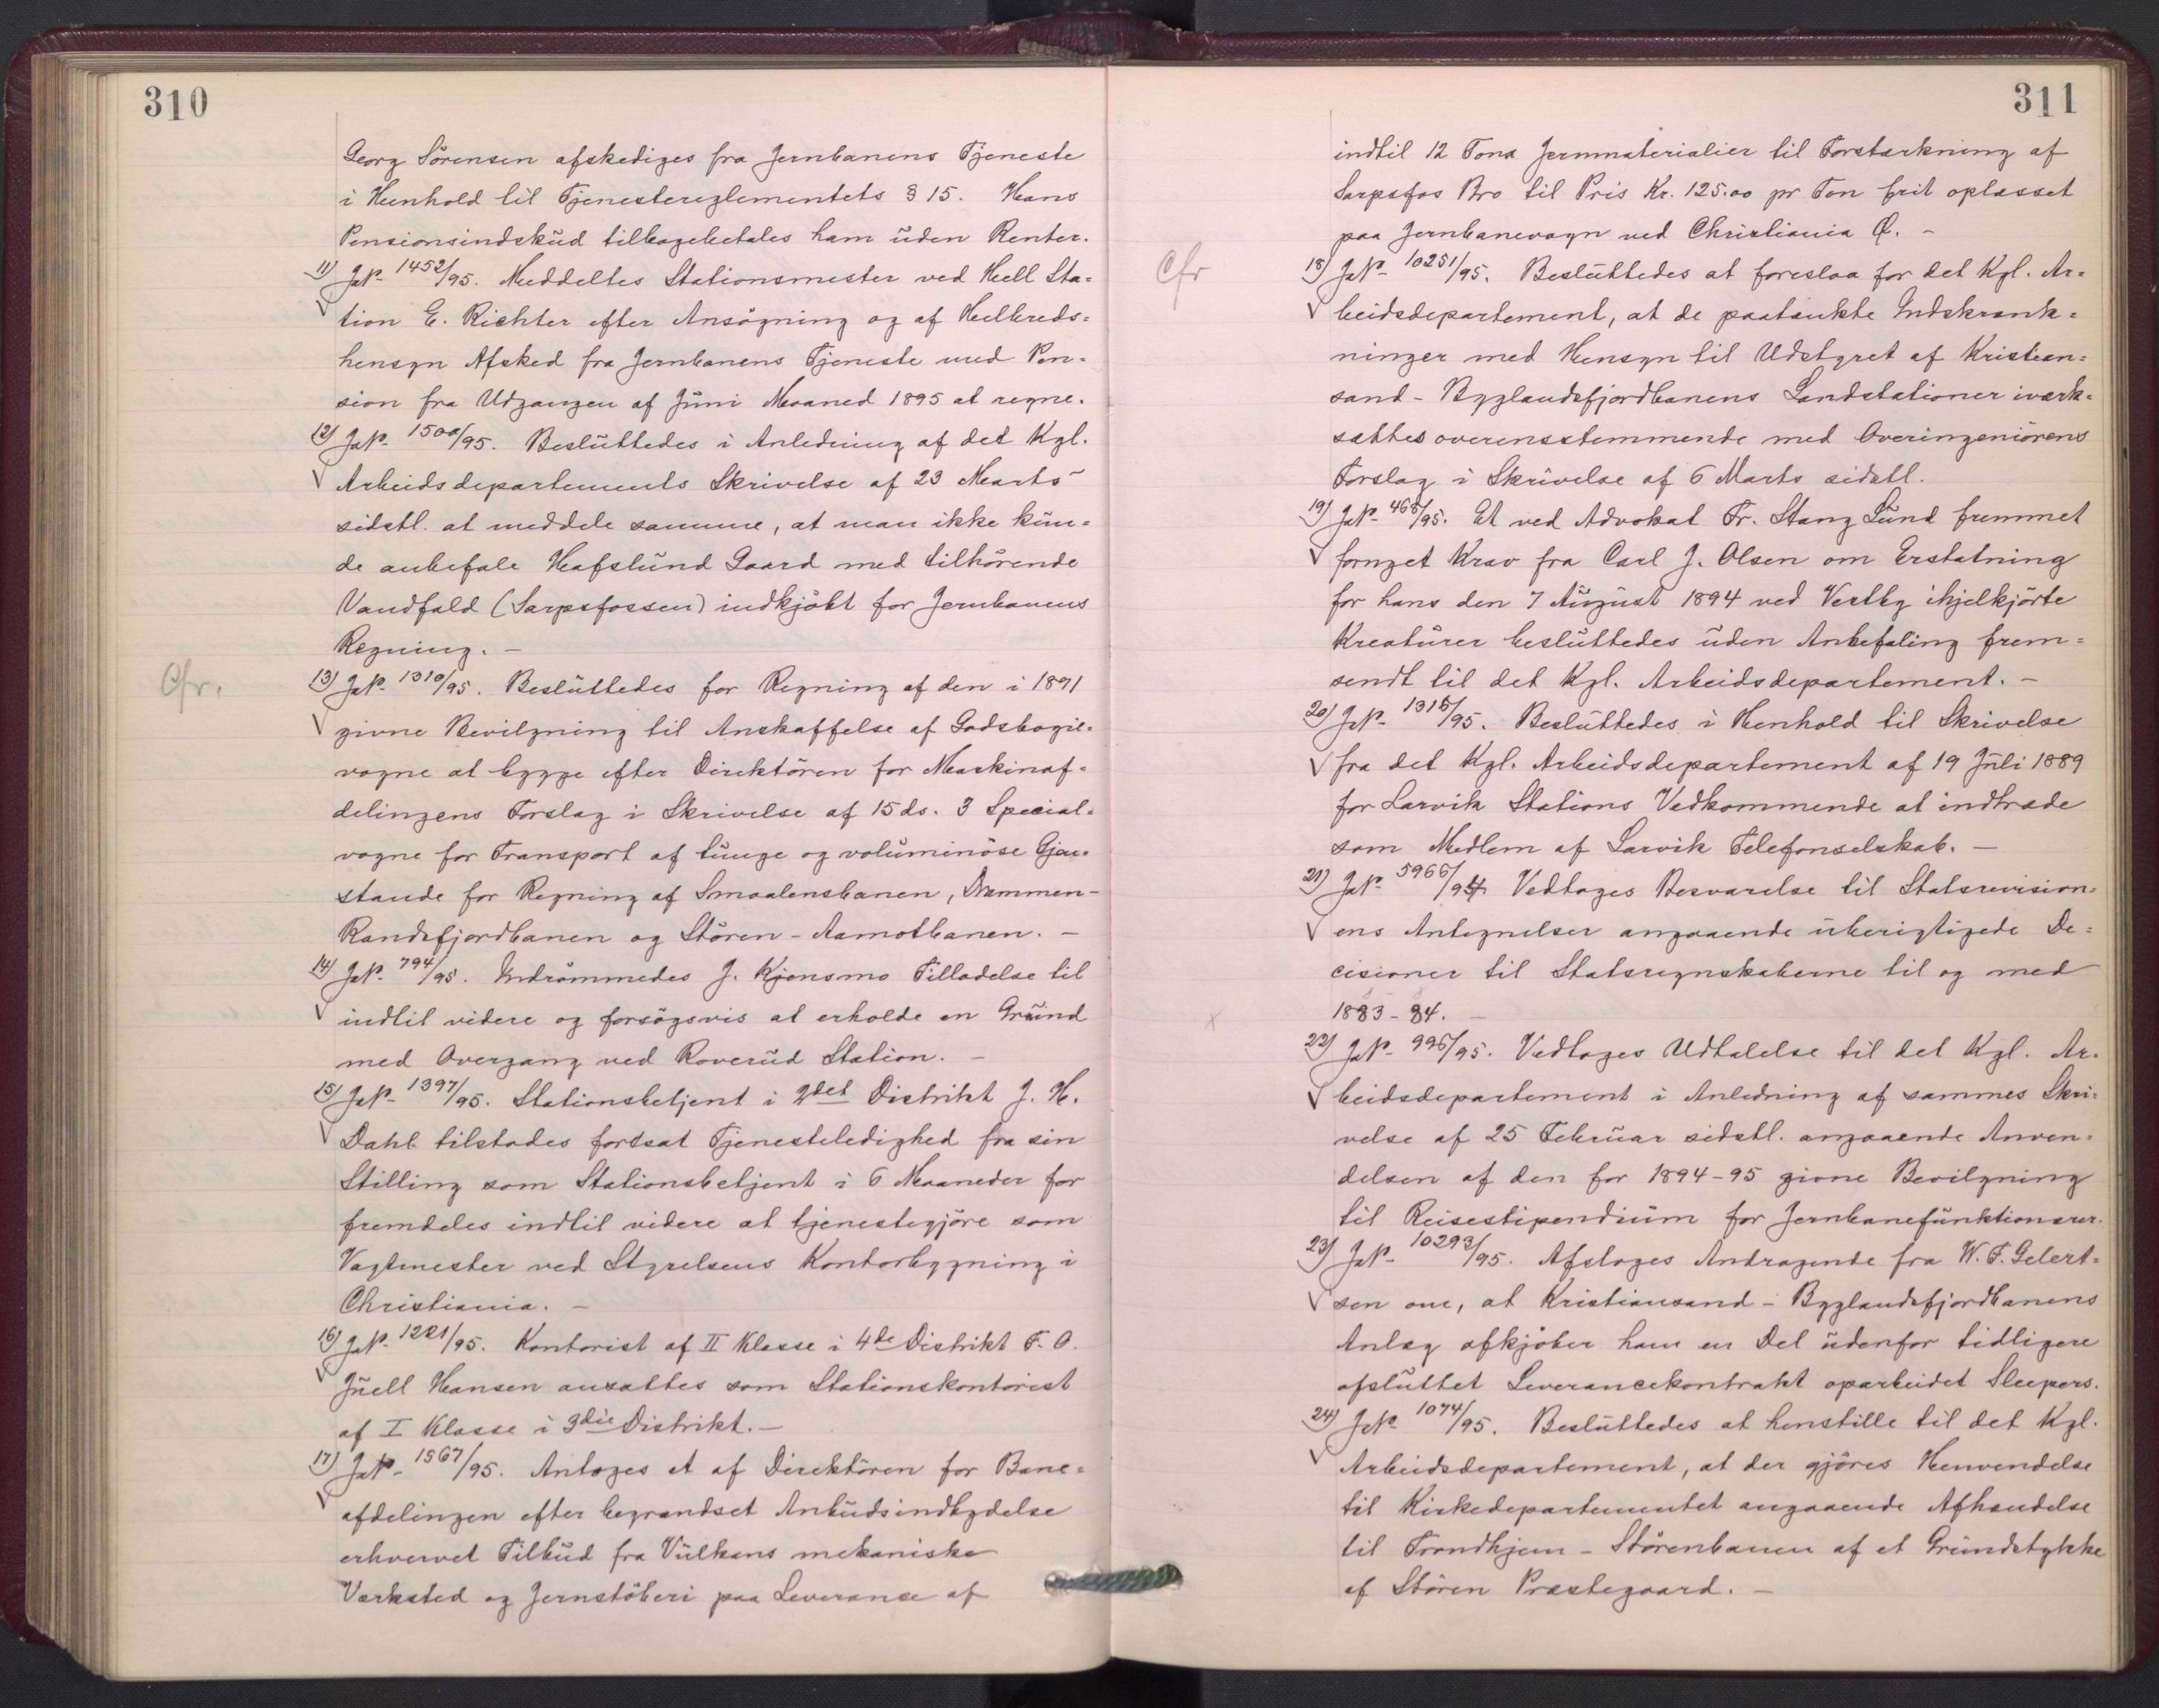 310
Georg Sörensen afskediges fra Jernbanens Tjeneste
i Henhold til Tjenestereglementets § 15. Hans
Pensionsindskud tilbagebetales ham uden Renter.
11) JNo 1452/95. Meddeltes Stationsmester ved Hell Sta=
tion E. Richter efter Ansögning og af Helbreds=
hensyn Afsked fra Jernbanens Tjeneste med Pen=
sion fra Udgangen af Juni Maaned 1895 at regne.
12) JNo 1500/95. Besluttedes i Anledning af det Kgl.
Arbeidsdepartements Skrivelse af 23 Marts
sidstl. at meddele samme, at man ikke kun=
de anbefale Hafslund Gaard med tilhörende
Vandfald (Sarpsfossen) indkjöbt for Jernbanens
Regning. –
Cfr.
13) JNo 1310/95. Besluttedes for Regning af den i 1891
givne Bevilgning til Anskaffelse af Godsbogie=
vogne at bygge efter Direktören for Maskinaf=
delingens Forslag i Skrivelse af 15 ds. 3 Special=
vogne for Transport af tunge og voluminöse Gjen=
stande for Regning af Smaalensbanen, Drammen-
Randsfjordbanen og Stören-Aamotbanen. –
14) JNo 794/95. Indrömmedes J. Kjonsmo Tilladelse til
indtil videre og forsögsvis at erholde en Grind
med Overgang ved Roverud Station. –
15) JNo 1397/95. Stationsbetjent i 2det Distrikt J. H.
Dahl tilstodes fortsat Tjenesteledighed fra sin
Stilling som Stationsbetjent i 6 Maaneder for
fremdeles indtil videre at tjenestegjöre som
Vagtmester ved Styrelsens Kontorbygning i
Christiania. –
16) JNo 1221/95. Kontorist af II Klasse i 4de Distrikt F. O.
Juell Hansen ansattes som Stationskontorist
af I Klasse i 3die Distrikt. –
17) JNo 1567/95. Antoges et af Direktören for Bane=
afdelingen efter begrændset Anbudsindbydelse
erhvervet Tilbud fra Vulkans mekaniske
Værksted og Jernstöberi paa Leverance af
311
indtil 12 Tons Jernmaterialier til Forstærkning af
Sarpsfos Bro til Pris Kr. 125.00 pr Ton frit oplæsset
paa Jernbanevogn ved Christiania Ø. –
Cfr
18) JNo 10251/95. Besluttedes at foreslaa for det Kgl. Ar=
beidsdepartement, at de paatænkte Indskrænk=
ninger med Hensyn til Udstyret af Kristian=
sand-Byglandsfjordbanens Landstationer iværk=
sættes overensstemmende med Overingeniörens
Forslag i Skrivelse af 6 Marts sidstl.
19) JNo 468/95. Et ved Advokat Fr. Stang Lund fremmet
fornyet Krav fra Carl J. Olsen om Erstatning
for hans den 7 August 1894 ved Vestby ihjelkjörte
Kreaturer besluttedes uden Anbefaling frem=
sendt til det Kgl. Arbeidsdepartement. –
20) JNo 1315/95. Besluttedes i Henhold til Skrivelse
fra det Kgl. Arbeidsdepartement af 19 Juli 1889
for Larvik Stations Vedkommende at indtræde
som Medlem af Larvik Telefonselskab. –
21) JNo 5966/94. Vedtoges Besvarelse til Statsrevision=
ens Antegnelser angaaende uberigtigede De=
cisioner til Statsregnskaberne til og med
1883-84. –
22) JNo 996/95. Vedtoges Udtalelse til det Kgl. Ar=
beidsdepartement i Anledning af sammes Skri=
velse af 25 Februar sidstl. angaaende Anven=
delsen af den for 1894-95 givne Bevilgning
til Reisestipendium for Jernbanefunktionærer.
23) JNo 10293/95. Afsloges Andragende fra W. F. Gelert=
sen om, at Kristiansand-Byglandsfjordbanens
Anlæg afkjöber ham en Del udenfor tidligere
afsluttet Leverancekontrakt oparbeidet Sleepers.
24) JNo 1074/95. Besluttedes at henstille til det Kgl.
Arbeidsdepartement, at der gjöres Henvendelse
til Kirkedepartementet angaaende Afhændelse
til Trondhjem-Störenbanen af et Grundstykke
af Stören Præstegaard. –